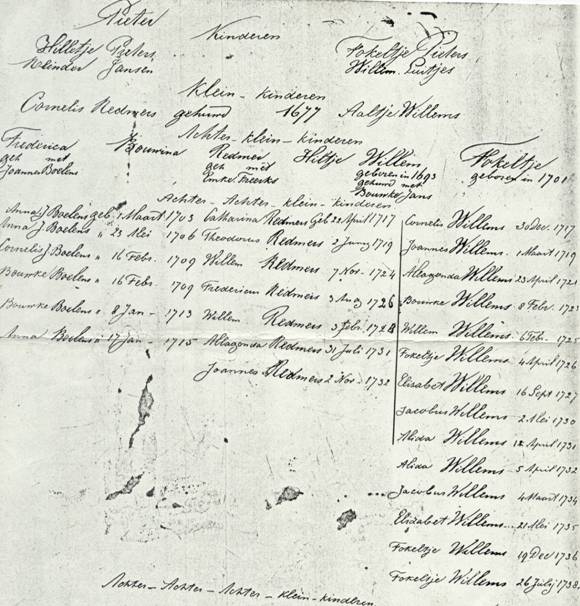 Pieter
Kinderen
Hilletje Pieters Fokeltje Pieters
Reinder Jansen Willem Luitjes
Klein-kinderen
Cornelis Redmers gehuwd 1677 Aaltje Willems
Achter-klein-kinderen
Frederica Bouwina Redmer Hiltje Willem Fokeltje
geh met geh met geboren in 1693 geboren in 1701
Joannes Boelens Emke Freerks gehuwd met
Bouwke Jans
Achter-Achter-klein-kinderen
Anna J Boelens geb. 1 Maart 1703 Catharina Redmers Geb 22 April 1717 Cornelis Willems 30 Dec. 1717
Anna J Boelens " 23 Mei 1706 Theodorus Redmers 2 Juny 1719 Joannes Willems 1 Maart 1719
Cornelis J Boelens " 16 Febr. 1709 Willem Redmers 7 Nov. 1724 Allagonda Willems 23 April 1721
Bouwke Boelens " 16 Febr. 1709 Fredericus Redmers 3 Aug 1726 Bouwke Willems 8 Febr. 1723
Bouwke Boelens " 8 Jan - 1713 Willem Redmers 3 Febr. 1728 Willem Willems 6 Febr. 1725
Anna Boelens " 17 Jan - 1715 Allagonda Redmers 31 Juli 1731 Fokeltje Willems 4 April 1726
Joannes Redmers 2 Nov. 1732 Elisabet Willems 16 Sept 1727
Jacobus Willems 2 Mei 1730
Alida Willems 12 April 1731
Alida Willems 5 April 1732
Jacobus Willems 4 Maart 1734
Elizabet Willems 21 Mei 1735
Fokeltje Willems 19 Dec 1736
Fokeltje Willems 26 July 1738
Achter-Achter-Achter-klein-kinderen.